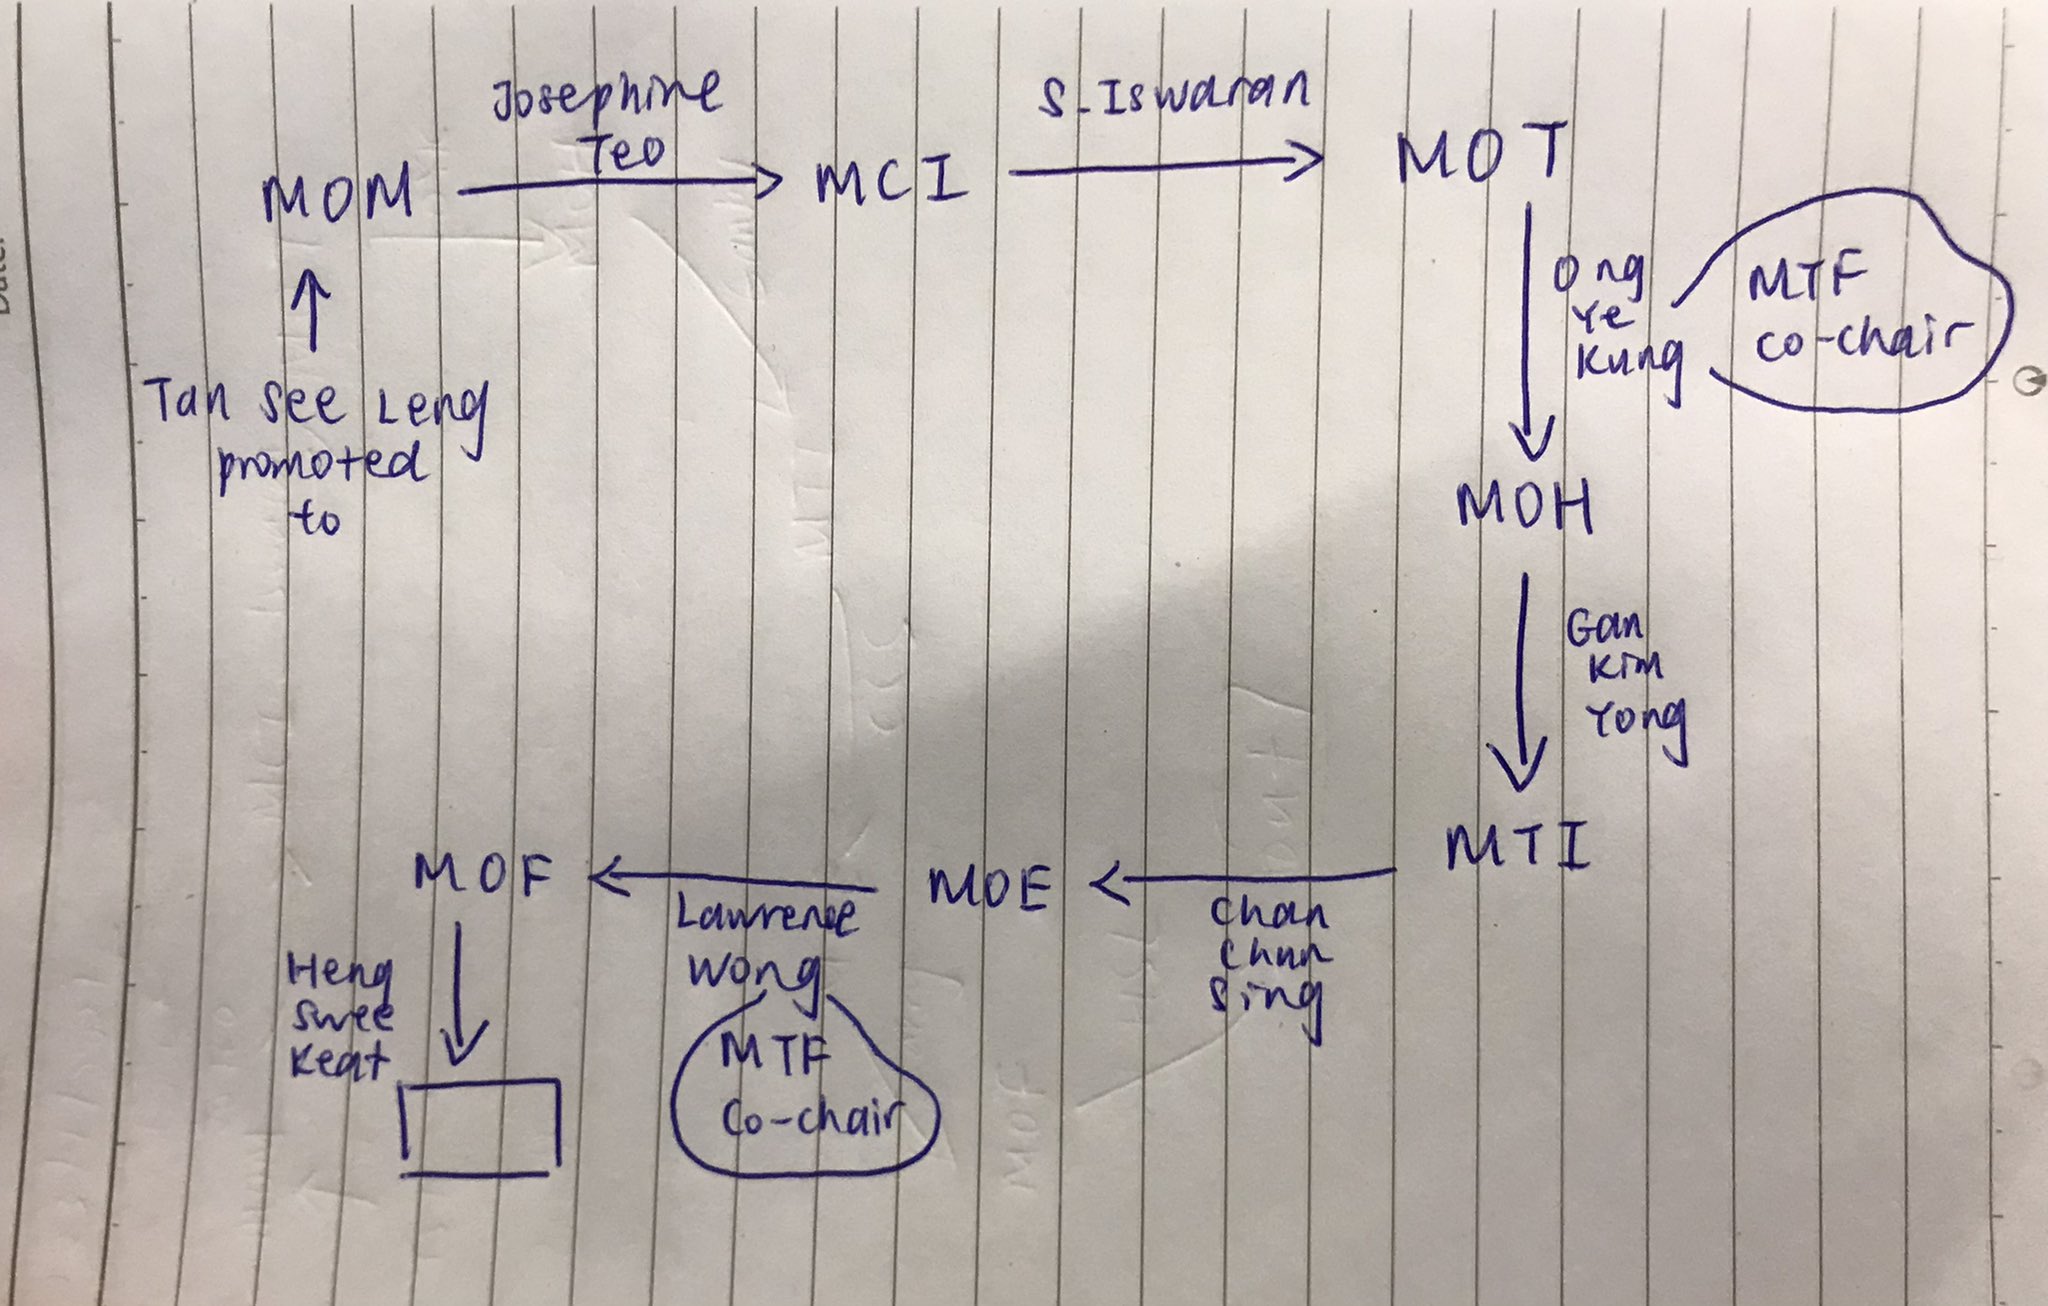 Josephine
Teo
S. Iswaran
MOM
MCI
MOT
Ong
Ye
Kung
MTF
co-chair
Tan See Leng
promoted
to
MOH
Gan
Kim
Yong
MTI
MOF
Lawrence
Wong
MOE
Chan
Chun
Sing
Heng
Swee
Keat
MTF
Co-chair